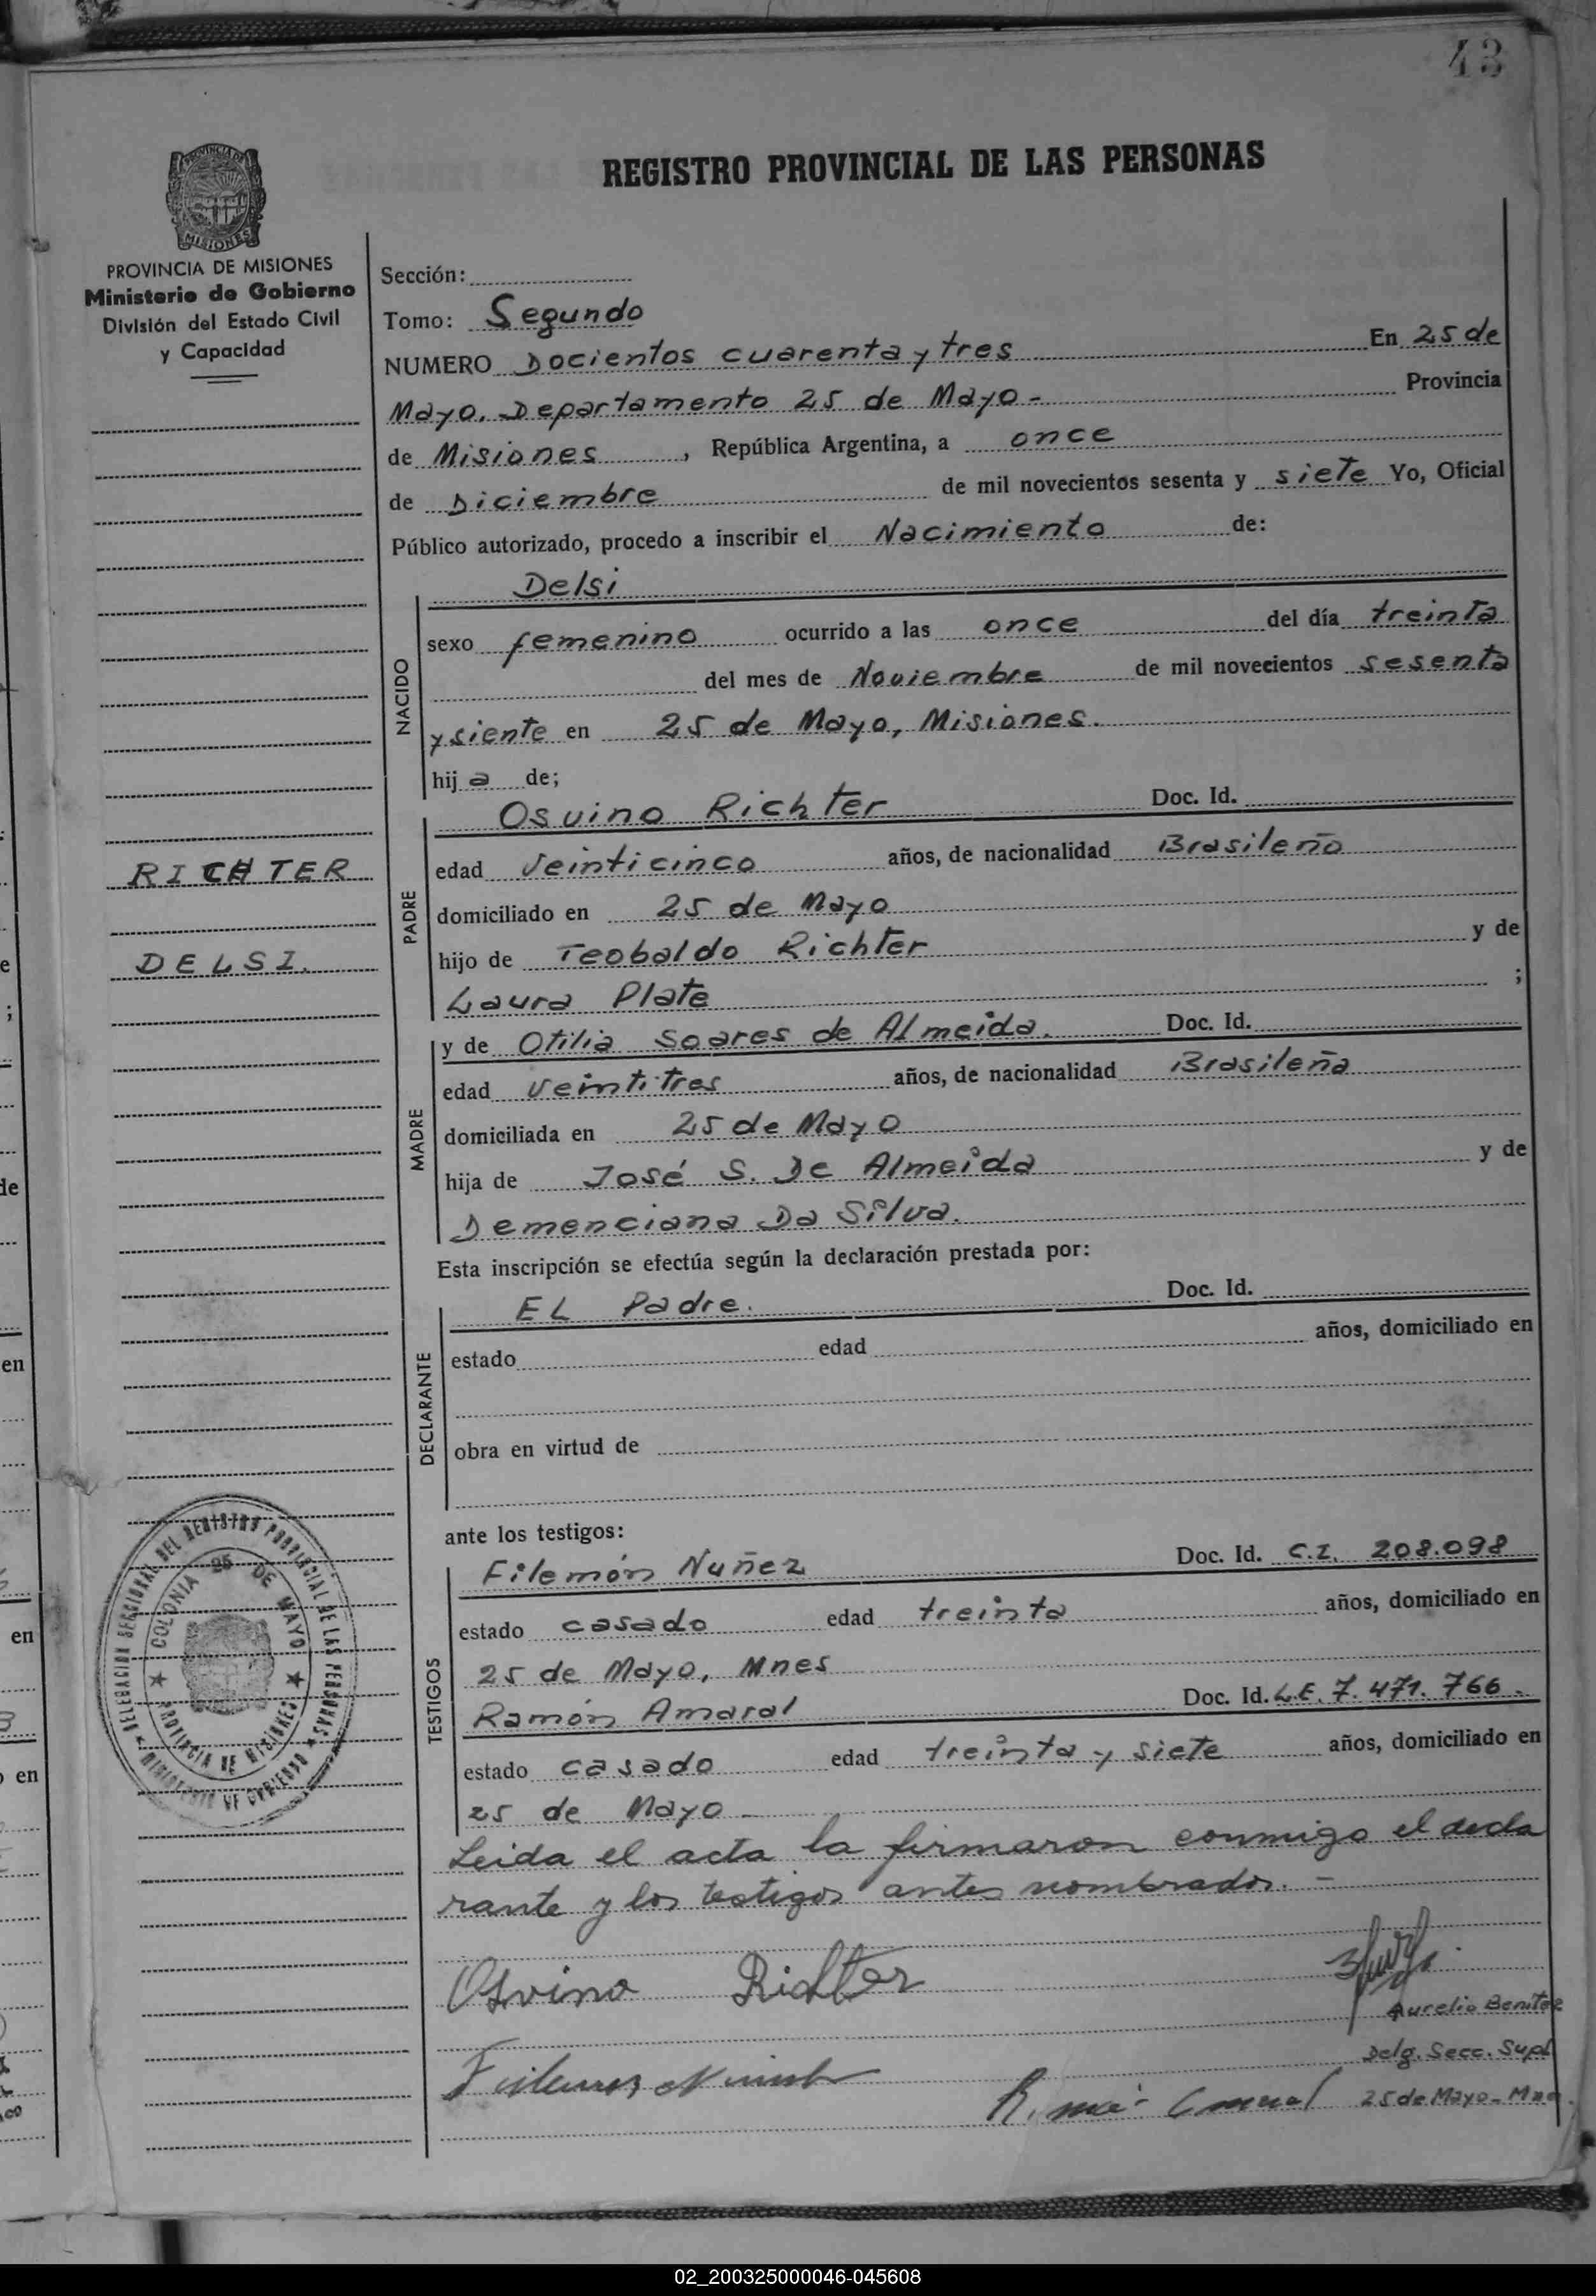 43
REGISTRO PROVINCIAL DE LAS PERSONAS
PROVINCIA DE MISIONES
Ministerio de Gobierno
División del Estado Civil
y Capacidad
RICHTER
DELSI.
Sección:
Tomo: Segundo
NUMERO Docientos cuarenta y tres En 25 de
Mayo. Departamento 25 de Mayo - Provincia
de Misiones, República Argentina, a once
de Diciembre de mil novecientos sesenta y siete Yo, Oficial
Público autorizado, procedo a inscribir el Nacimiento de:
NACIDO
Delsi
sexo femenino ocurrido a las once del día treinta
del mes de Noviembre de mil novecientos sesenta
y siente en 25 de Mayo, Misiones.
hija de;
PADRE
Osvino Richter Doc. Id.
edad veinticinco años, de nacionalidad Brasileño
domiciliado en 25 de Mayo
hijo de Teobaldo Richter y de
Laura Plate ;
MADRE
y de Otilia Soares de Almeida. Doc. Id.
edad veintitres años, de nacionalidad Brasileña
domiciliada en 25 de Mayo
hija de José S. De Almeida y de
Demenciana Da Silva.
Esta inscripción se efectúa según la declaración prestada por:
DECLARANTE
EL Padre. Doc. Id.
estado edad años, domiciliado en
obra en virtud de
ante los testigos:
TESTIGOS
Filemón Nuñez Doc. Id. C.I. 208.098
estado casado edad treinta años, domiciliado en
25 de Mayo, Mnes
Ramón Amaral Doc. Id. L.E. 7.471.766.
estado casado edad treinta y siete años, domiciliado en
25 de Mayo -
Leida el acta la firmaron conmigo el decla
rante y los testigos antes nombrados. -
Osvino Richter
Aurelio Benitez
Delg. Secc. Supl
25 de Mayo - Mnes
DELEGACION SECCIONAL DEL REGISTRO PROVINCIAL DE LAS PERSONAS
MINISTERIO DE GOBIERNO
COLONIA 25 DE MAYO
PROVINCIA DE MISIONES
02_200325000046-045608